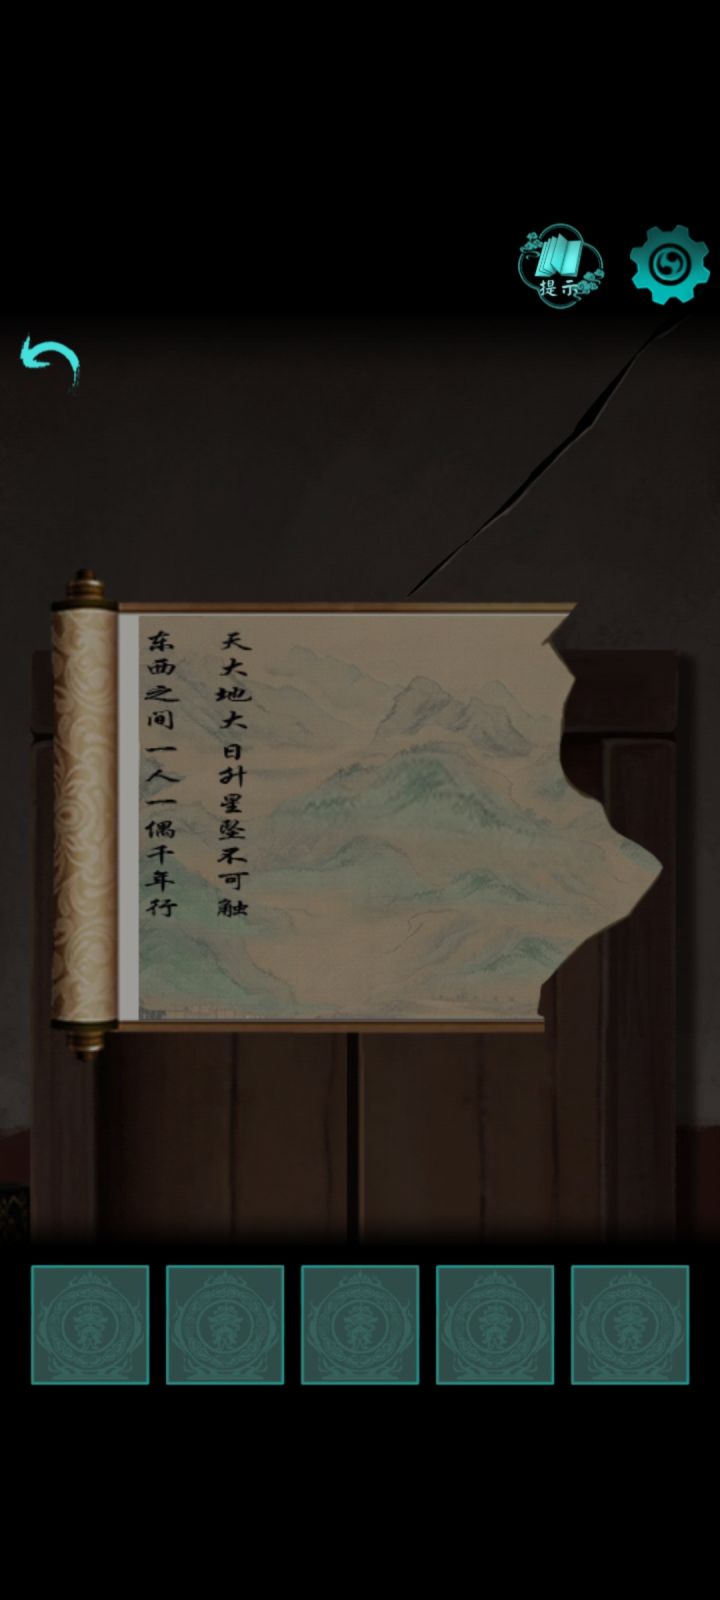 提示
天大地大日升星坠不可触
东西之间一人一偶千年行